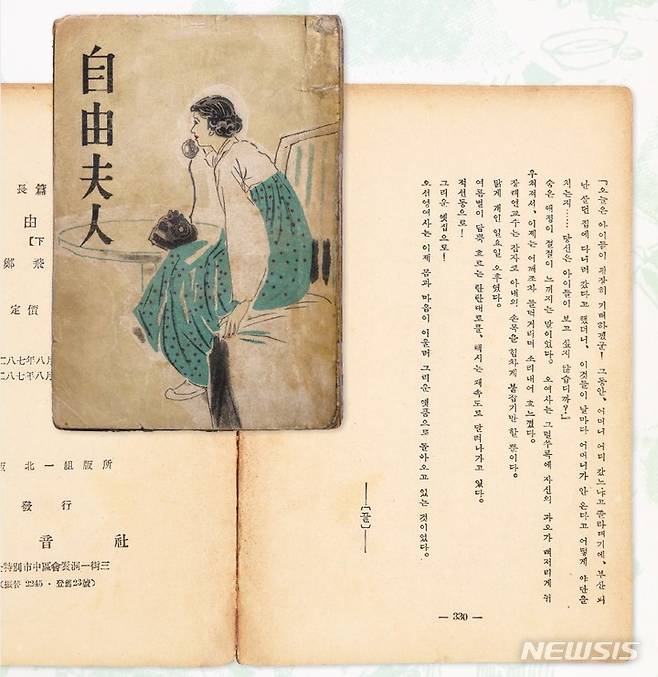 自由夫人
長篇
由
【下
鄭飛
定價
二八七年八月
二八七年八月
版 北一組版所
發行
音 社
特別市中區會賢洞一街三
(振替 2245・登錄23號)
「오늘은 아이들이 굉장히 기뻐하겠군! 그동안, 어머니 어디 갔느냐고 졸라대기에, 부산 피
난 살던 집에 다니러 갔다고 했더니, 이것들이 날마다 어머니가 안 온다고 어떻게 야단을
치는지…… 당신은 아이들이 보고 싶지 않습디까?」
숨은 애정이 절절이 느껴지는 말이었다. 오여사는 그럴쑤록에 자신의 과오가 뼈저리게 뉘
우쳐져서, 이제는 어깨조차 들먹거리며 소리내어 흐느꼈다.
장태연교수는 잠자코 아내의 손목을 힘차게 붙잡기만 할 뿐이다.
맑게 개인 일요일 오후였다.
여름볕이 담뿍 흐르는 탄탄대로를, 택시는 쾌속도로 달려나가고 있었다.
적선동으로!
그리운 옛집으로!
오선영여사는 이제 몸과 마음이 아울러 그리운 옛품으로 돌아오고 있는 것이었다.
—[끝]—
— 330 —
NEWSIS